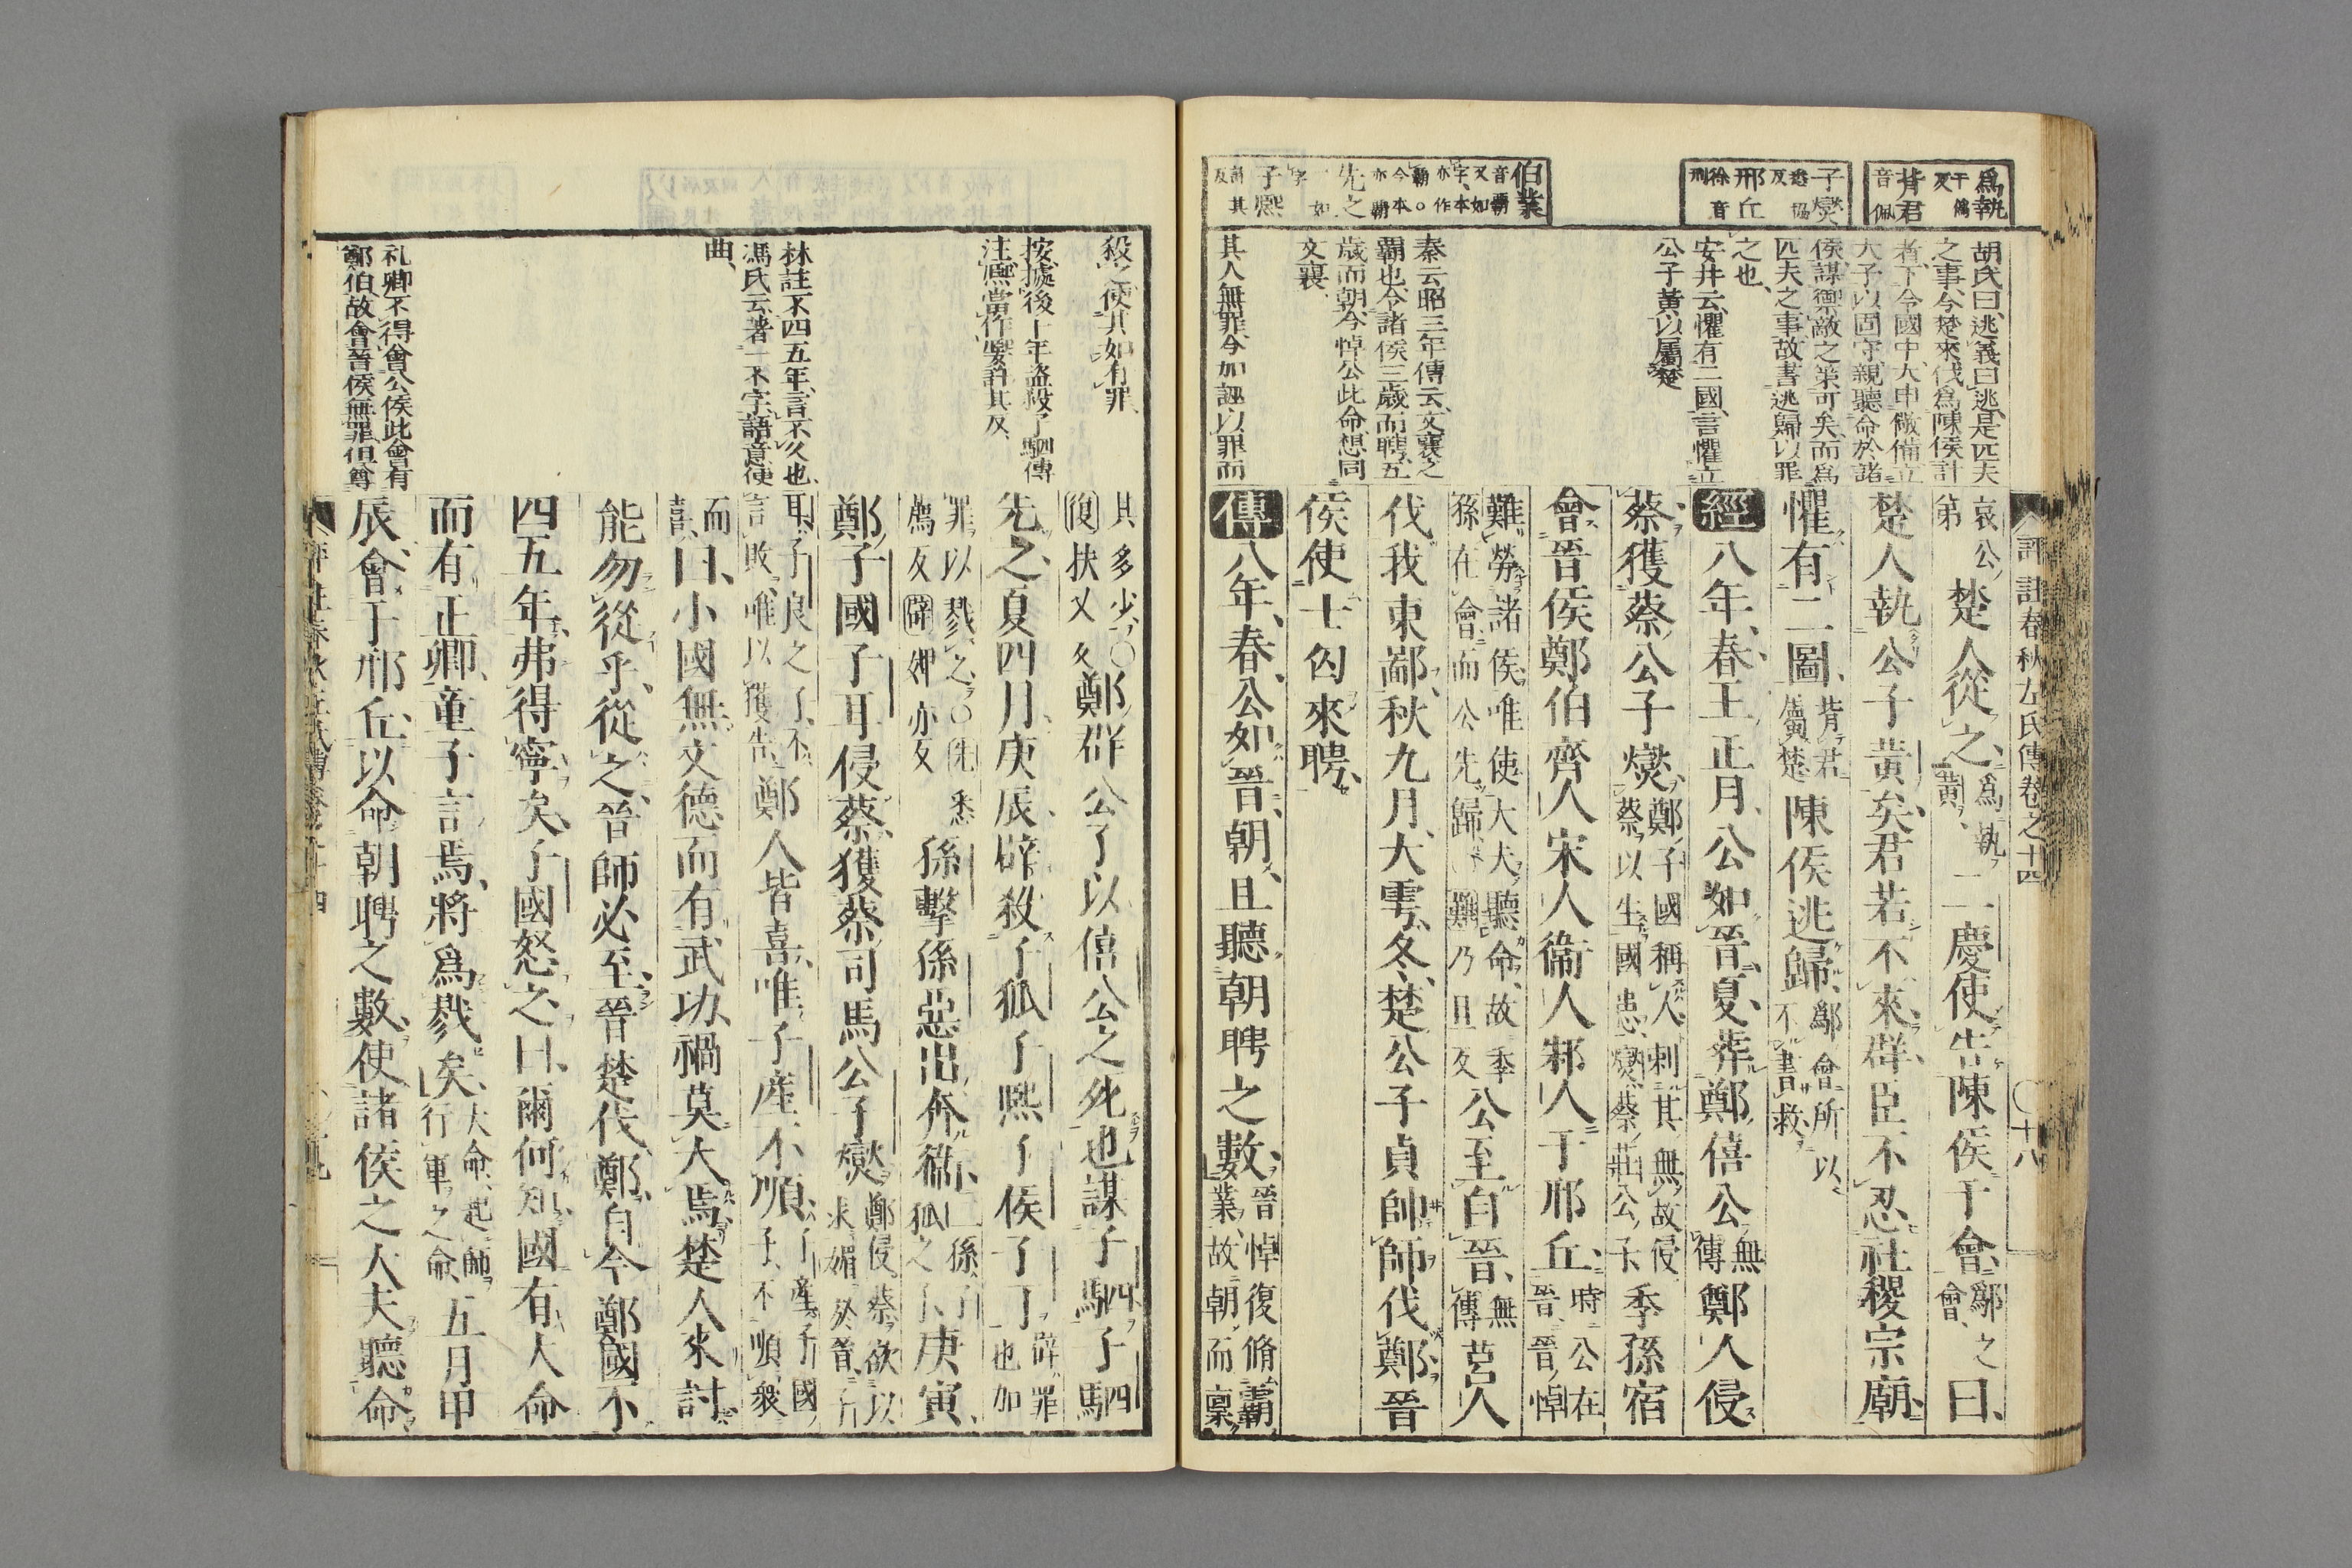 評註春秋左氏傳卷之十四
〇十八
爲執
于僞反
背君
音佩
子燮
悉協反
邢丘
徐音刑
伯業
音霸又如字本亦作霸〇今本亦霸
先之
如字
子熙
許其反
胡氏曰逃義曰逃是匹夫
之事今楚來伐爲陳侯計
者下令國中大申儆備立
大子以固守親聽命於諸
侯謀禦敵之策可矣而爲
匹夫之事故書逃歸以罪
之也
安井云懼有二國言懼立
公子黃以屬楚
秦云昭三年傳云文襄之
霸也令諸侯三歲而聘五
歲而朝今悼公此命想同
文襄
其人無罪今加誣以罪而
哀公第楚人從之爲執黃二慶使告陳侯于會鄬之會曰
楚人執公子黃矣君若不來群臣不忍社稷宗廟
懼有二圖背君屬楚陳侯逃歸鄬會所以不書救
經八年春王正月公如晉夏葬鄭僖公無傳鄭人侵
蔡獲蔡公子燮鄭子國稱人刺其無故侵蔡以生國患燮蔡莊公子季孫宿
會晉侯鄭伯齊人宋人衞人邾人于邢丘時公在晉晉悼
難勞諸侯唯使大夫聽命故季孫在會而公先歸難乃旦反公至自晉無傳莒人
伐我東鄙秋九月大雩冬楚公子貞帥師伐鄭晉
侯使士匄來聘
傳八年春公如晉朝且聽朝聘之數晉悼復脩霸業故朝而稟
殺之使其如有罪
按據後十年盜殺子駟傳
注熙當作嬰許其反
林註不四五年言不久也
馮氏云著一不字語意便
曲
礼卿不得會公侯此會有
鄭伯故會晉侯無罪但尊
其多少〇復扶又反鄭群公子以僖公之死也謀子駟子駟
先之夏四月庚辰辟殺子狐子熙子侯子丁辟罪也加
罪以戮之〇先悉薦反辟婢亦反孫擊孫惡出奔衞二孫子狐之子庚寅
鄭子國子耳侵蔡獲蔡司馬公子燮鄭侵蔡欲以求媚於晉子
耳子良之子不言敗唯以獲告鄭人皆喜唯子產不順子產子國子不順衆
而喜曰小國無文德而有武功禍莫大焉楚人來討
能勿從乎從之晉師必至晉楚伐鄭自今鄭國不
四五年弗得寧矣子國怒之曰爾何知國有大命
而有正卿童子言焉將爲戮矣大命起師行軍之命五月甲
辰會于邢丘以命朝聘之數使諸侯之大夫聽命